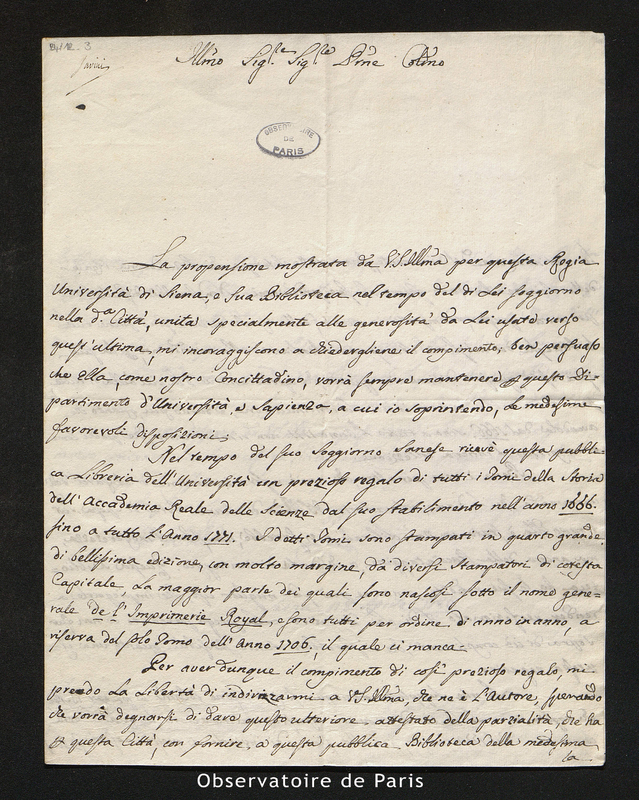 B4/12. 3
Illmo Sigre Sigre Pme Colmo
OBSERVATOIRE
DE
PARIS
La propensione mostrata da V.S. Illma per questa Regia
Università di Siena, e Sua Biblioteca nel tempo del di Lei soggiorno
nella da. Città, unita specialmente alle generosità da Lei usate verso
quest'ultima, mi incoraggiscono a chiedergliene il compimento; ben persuaso
che Ella, come nostro Concittadino, vorrà sempre mantenere p questo Di-
partimento d'Università, e Sapienza, a cui io soprintendo, le medesime
favorevoli disposizioni;
Nel tempo del suo Soggiorno Sanese ricevè questa pubbli-
ca Libreria dell'Università un prezioso regalo di tutti i Tomi della Storia
dell'Accademia Reale delle Scienze dal suo stabilimento nell'anno 1666.
fino a tutto l'Anno 1771. I dotti Tomi sono stampati in quarto grande
di bellissima edizione, con molto margine, da diversi Stampatori di cotesta
Capitale, La maggior parte dei quali sono nascosi sotto il nome gene-
rale de l'Imprimerie Royal, e sono tutti per ordine di anno in anno, a
riserva del solo Tomo dell'Anno 1706, il quale ci manca.
Per aver dunque il compimento di così prezioso regalo, mi
prendo la Libertà di indirizarmi a V.S. Illma, che ne è l'Autore, sperando
che vorrà degnarsi di dare questo ulteriore attestato della parzialità, che ha
p questa Città, con fornire a questa pubblica Biblioteca della medesima
la
Observatoire de Paris